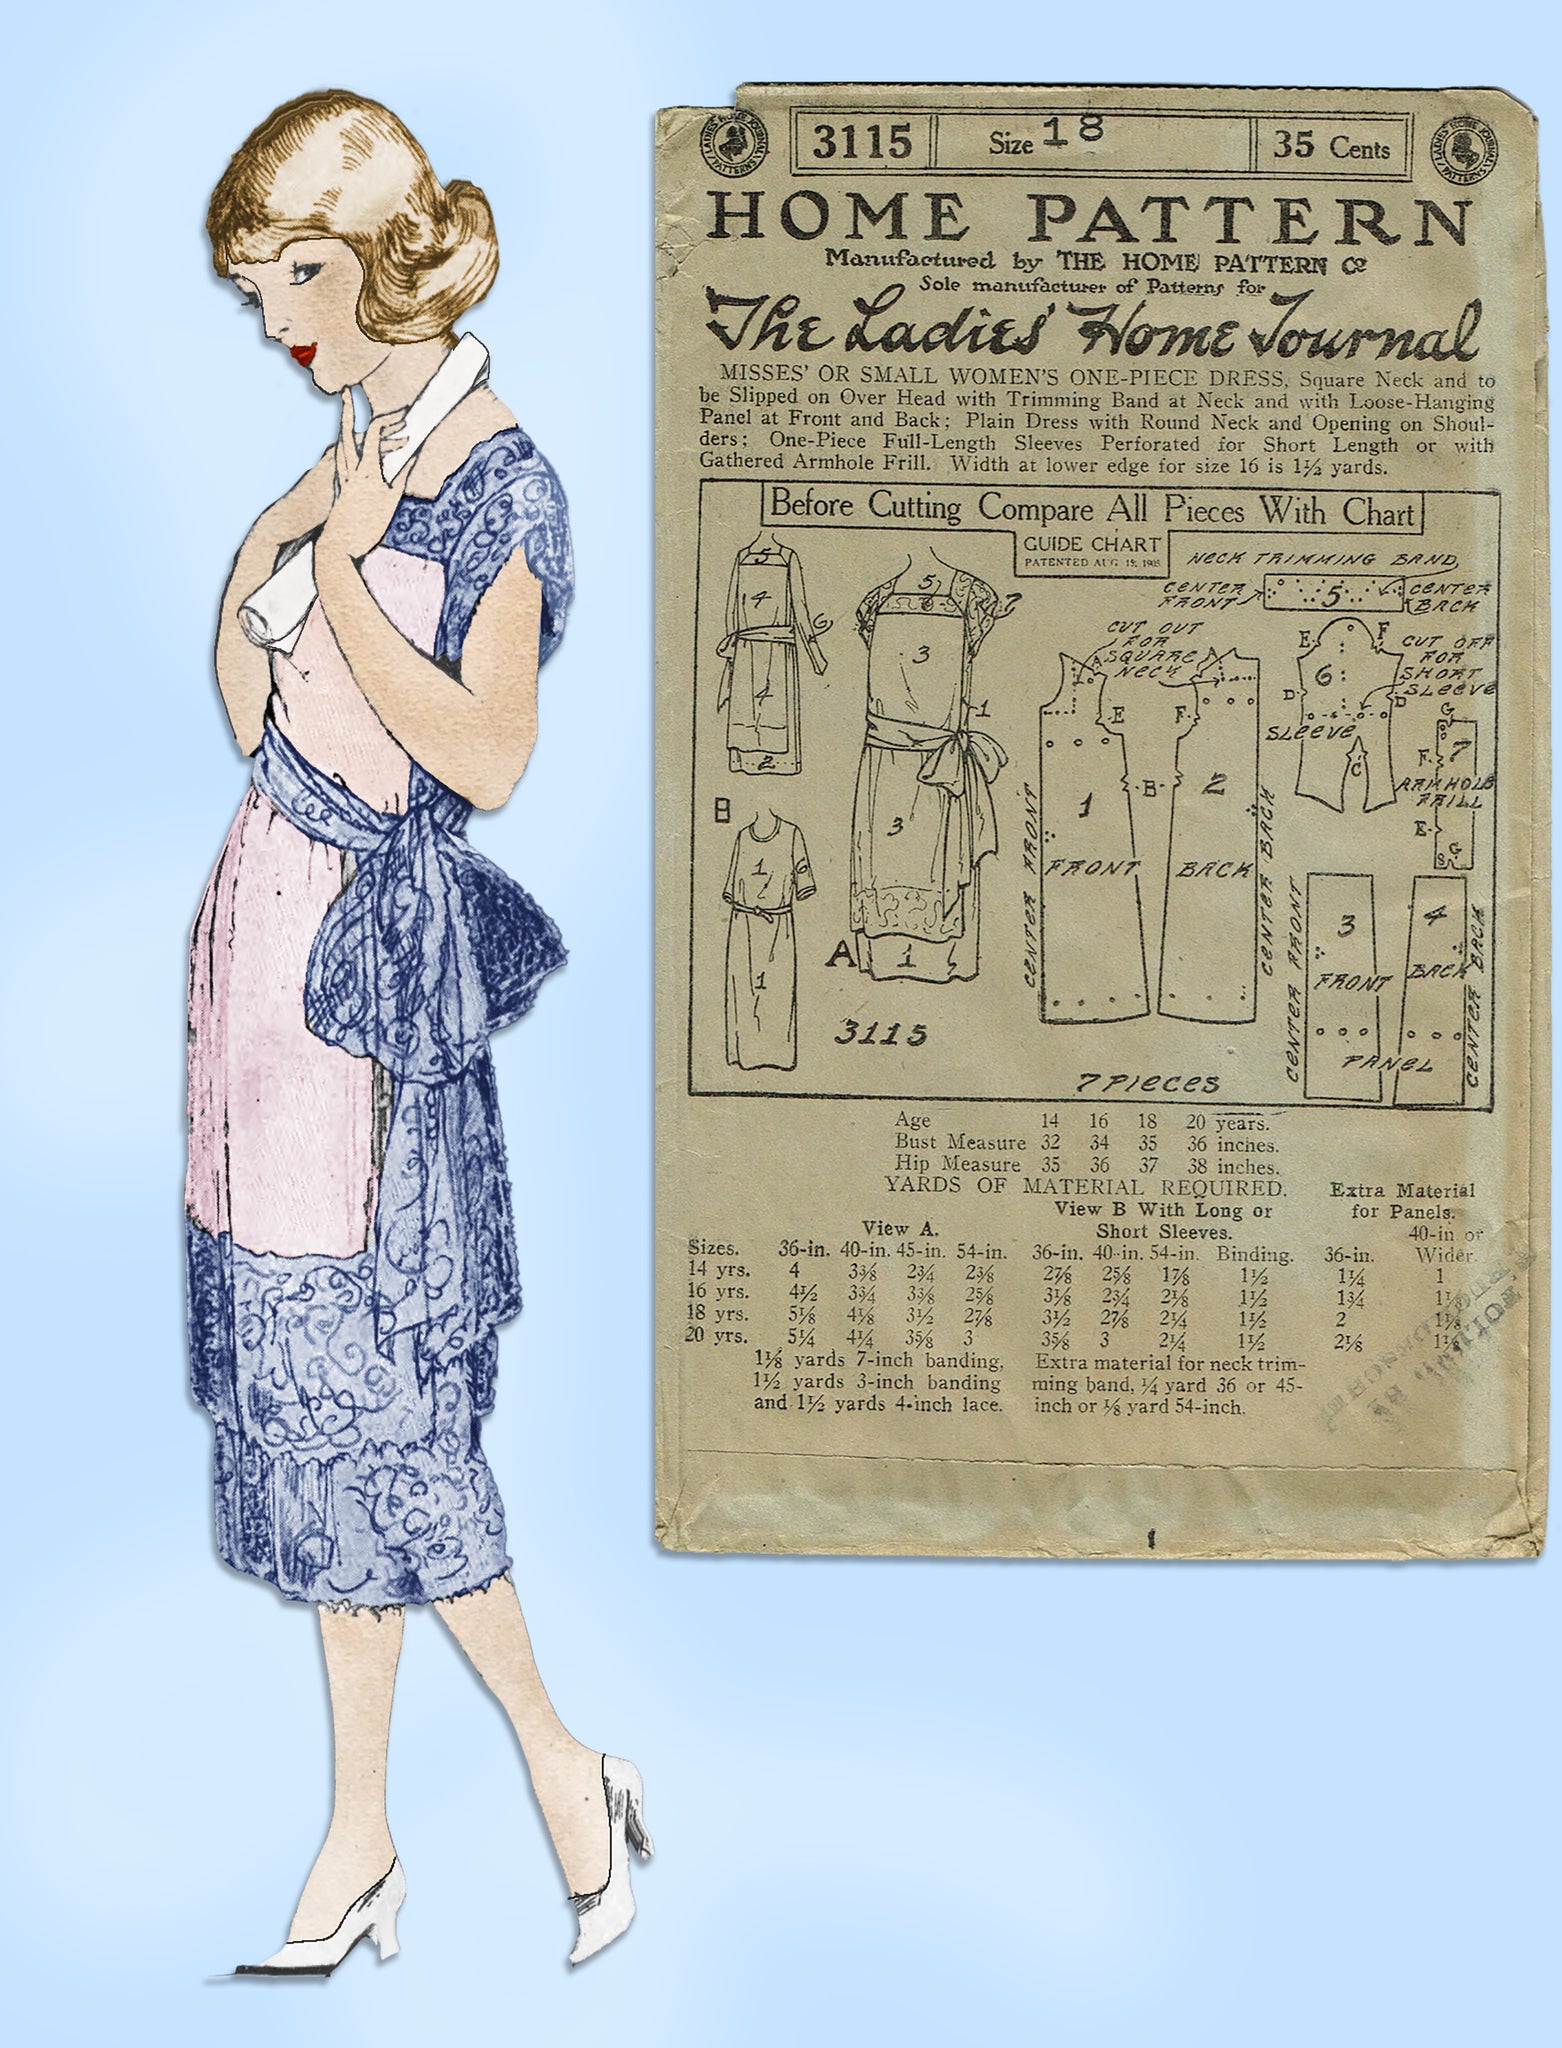 3115 Size 18 35 Cents
LADIES' HOME JOURNAL PATTERNS
LADIES' HOME JOURNAL PATTERNS
HOME PATTERN
Manufactured by THE HOME PATTERN Co
Sole manufacturer of Patterns for
The Ladies' Home Journal
MISSES' OR SMALL WOMEN'S ONE-PIECE DRESS, Square Neck and to
be Slipped on Over Head with Trimming Band at Neck and with Loose-Hanging
Panel at Front and Back; Plain Dress with Round Neck and Opening on Shoul-
ders; One-Piece Full-Length Sleeves Perforated for Short Length or with
Gathered Armhole Frill. Width at lower edge for size 16 is 1½ yards.
Before Cutting Compare All Pieces With Chart
GUIDE CHART
PATENTED AUG 15, 1905
NECK TRIMMING BAND
CENTER FRONT
5
CENTER BACK
5
4
6
4
2
5
7
3
1
3
A
1
B
1
6
1
3115
CUT OUT
FOR
SQUARE
NECK
E
F
B
1
FRONT
CENTER FRONT
2
BACK
CENTER BACK
E
F
6
D
D
SLEEVE
C
CUT OFF
FOR
SHORT
SLEEVE
G
7
F
ARMHOLE
FRILL
E
G
3
FRONT
CENTER FRONT
4
BACK
CENTER BACK
PANEL
7 PIECES
Age 14 16 18 20 years.
Bust Measure 32 34 35 36 inches.
Hip Measure 35 36 37 38 inches.
YARDS OF MATERIAL REQUIRED.
View A.
View B With Long or
Short Sleeves.
Extra Material
for Panels.
40-in or
Sizes. 36-in. 40-in. 45-in. 54-in. 36-in. 40-in. 54-in. Binding. 36-in. Wider.
14 yrs. 4 3⅜ 2¾ 2⅜ 2⅞ 2⅝ 1⅞ 1½ 1¼ 1
16 yrs. 4½ 3¾ 3⅜ 2⅝ 3⅛ 2¾ 2⅛ 1½ 1¾
18 yrs. 5⅛ 4⅛ 3½ 2⅞ 3½ 2⅞ 2¼ 1½ 2 1⅛
20 yrs. 5¼ 4¼ 3⅝ 3 3⅝ 3 2¼ 1½ 2⅛
1⅛ yards 7-inch banding,
1½ yards 3-inch banding
and 1½ yards 4-inch lace.
Extra material for neck trim-
ming band, ¼ yard 36 or 45-
inch or ⅛ yard 54-inch.